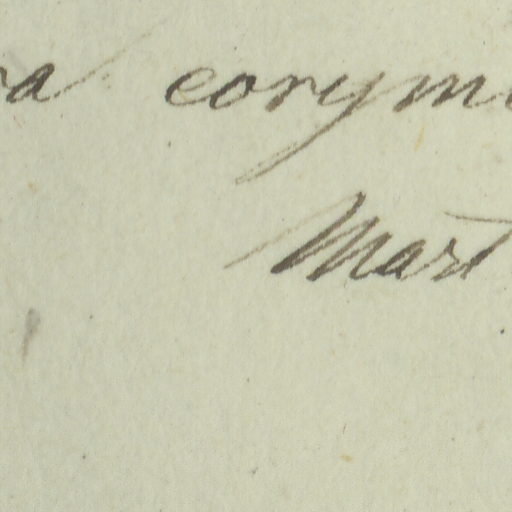 ra corym
Mart